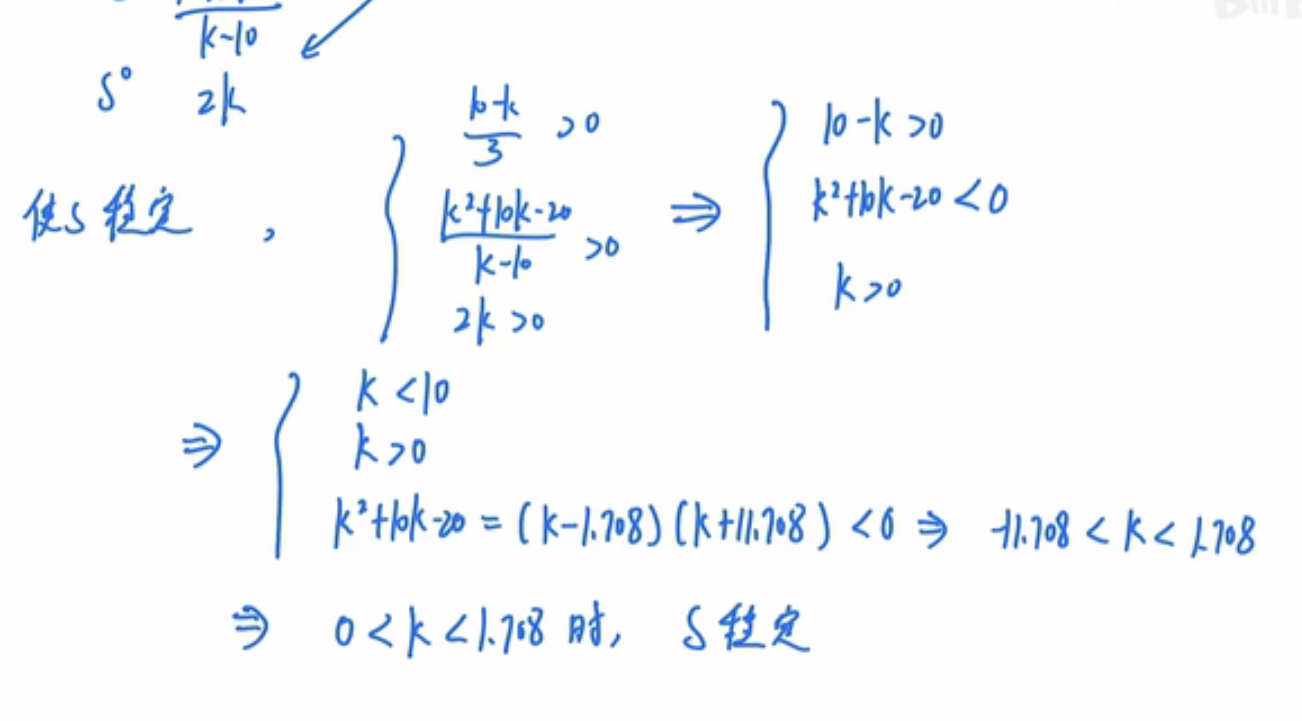 k-10
S⁰ 2k
使S稳定,
(10-k)/3 >0
(k²+10k-20)/(k-10) >0
2k>0
⇒
10-k>0
k²+10k-20<0
k>0
⇒
k<10
k>0
k²+10k-20=(k-1.708)(k+11.708)<0 ⇒ -11.708<k<1.708
⇒ 0<k<1.708 时, S稳定